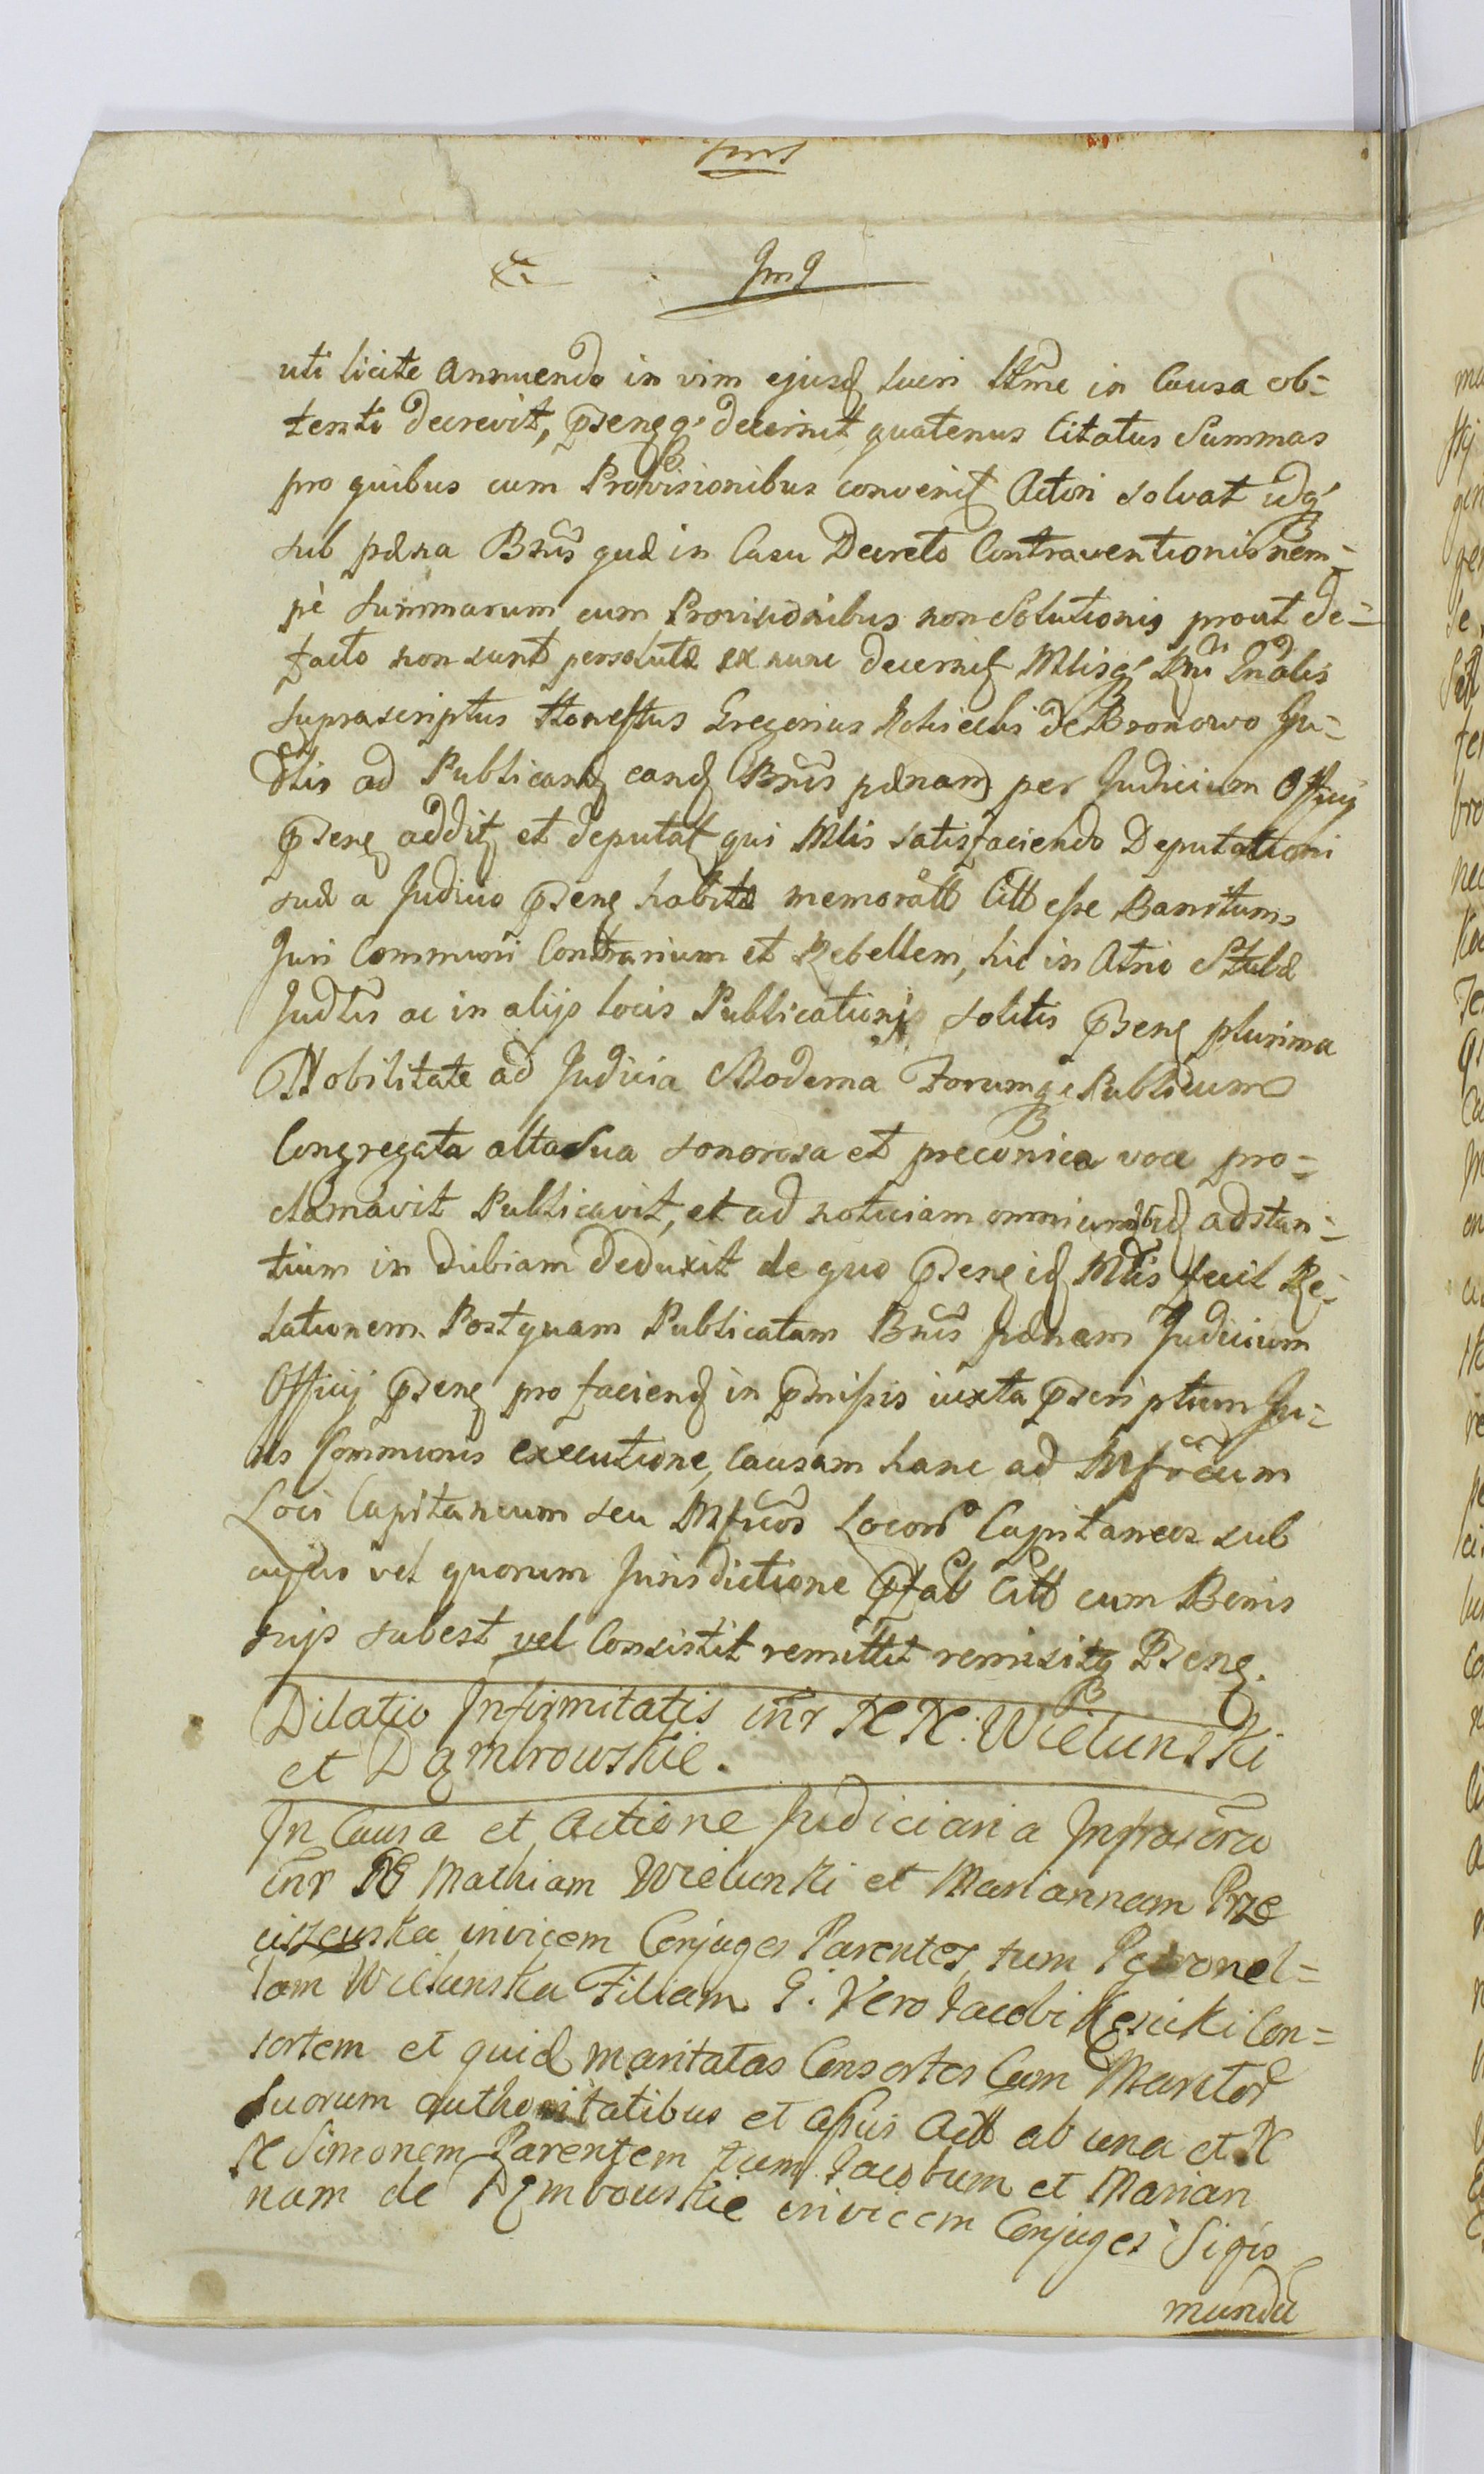 uti licite annuendo in vim ejusd lucri ttme in Causa ob=
tenti decrevit, pseng q decernit quatenus Citatus Summas
pro quibus cum Provisionibus convenit Actori solvat idq
sub pæna Bnis quæ in Casu Decreto Contraventionis nem=
pè summarum cum Provisionibus non Solutionis prout de=
facto non sunt persolutæ ex nunc decernit Mlisq Rni Gnalis
suprascriptus Honestus Gregorius de Bronowo Ju=
dlis ad Publicand eand Bnis pænam per Judicium Officij
pseng addit et deputat qui Mlis satisfaciendo Deputationi
suæ a Judicio pseng habitæ memoratt Citt esse Banitum
Juri Communi Contrarium et Rebellem, hic in Atrio Stubæ
Judlis ac in alijs locis Publicationis solitis pseng plurima
Nobilitate ad Judicia Moderna Forumq Publicum
Congregata alta sua sonorosa et preconica voce pro=
clamavit Publicavit, et ad notitiam omnium adstan=
tium in dubiam deduxit de quo pseng id Mlis fecit Re=
lationem. Postquam Publicatam Bnis pænam Judicium
Officij pseng pro faciend in pmissis iuxta pscriptum Ju=
ris Communis executione, causam hanc ad Mfcum
Loci Capitaneum seu Mficos Locor Capitaneos sub
cujus vel quorum Jurisdictione pfat Citt cum Bonis
suis subest vel Consistit remittit remisitq Pseng.
Dilatio Infirmitatis inr NN. Wielunski
et Dąmbrowskie.
In Causa et Actione Judiciaria Infrascra
inr NG Mathiam Wielunski et Mariannam Prze
ciszewska invicem Conjuges Parentes, tum Petronel=
lam Wielunska Filiam G. Vero Jacobi Kęsicki Con=
sortem et quid maritatas Consortes Cum Maritor
suorum authoritatibus et assis Actt ab una et N
N Simonem Parentem tum Jacobum et Marian
nam de Dęmbowskie invicem Conjuges Sigis
mundu